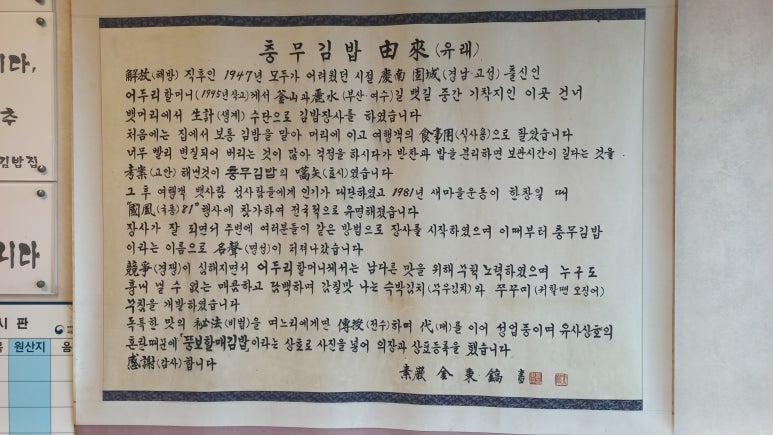 충무김밥 由來(유래)
解放(해방) 직후인 1947년 모두가 어려웠던 시절 慶南 固城(경남·고성) 출신인
어두리할머니(1995년 작고)께서 釜山과 麗水(부산·여수)길 뱃길 중간 기착지인 이곳 건너
뱃머리에서 生計(생계) 수단으로 김밥장사를 하였습니다
처음에는 집에서 보통 김밥을 말아 머리에 이고 여행객의 食事用(식사용)으로 팔았습니다
너무 빨리 변질되어 버리는 것이 많아 걱정을 하시다가 반찬과 밥을 분리하면 보관시간이 길다는 것을
考案(고안) 해낸것이 충무김밥의 嚆矢(효시)였습니다
그 후 여행객 뱃사람 섬사람들에게 인기가 대단하였고 1981년 새마을운동이 한창일 때
"國風(국풍)81"행사에 참가하여 전국적으로 유명해졌습니다
장사가 잘 되면서 주변에 여러분들이 같은 방법으로 장사를 시작하였으며 이때부터 충무김밥
이라는 이름으로 名聲(명성)이 퍼져나갔습니다
競爭(경쟁)이 심해지면서 어두리할머니께서는 남다른 맛을 위해 무척 노력하였으며 누구도
흉내 낼 수 없는 매콤하고 담백하며 감칠맛 나는 속박김치(무우김치)와 쭈꾸미(귀할땐 오징어)
무침을 개발하였습니다
독특한 맛의 秘法(비법)을 며느리에게만 傳授(전수)하며 代(대)를 이어 성업중이며 유사상호의
혼란때문에 "뚱보할매김밥"이라는 상호로 사진을 넣어 의장과 상표등록을 했습니다
感謝(감사)합니다
素巖 金東鎬 書
니다.
추
김밥집
리다
시 판
원산지
음